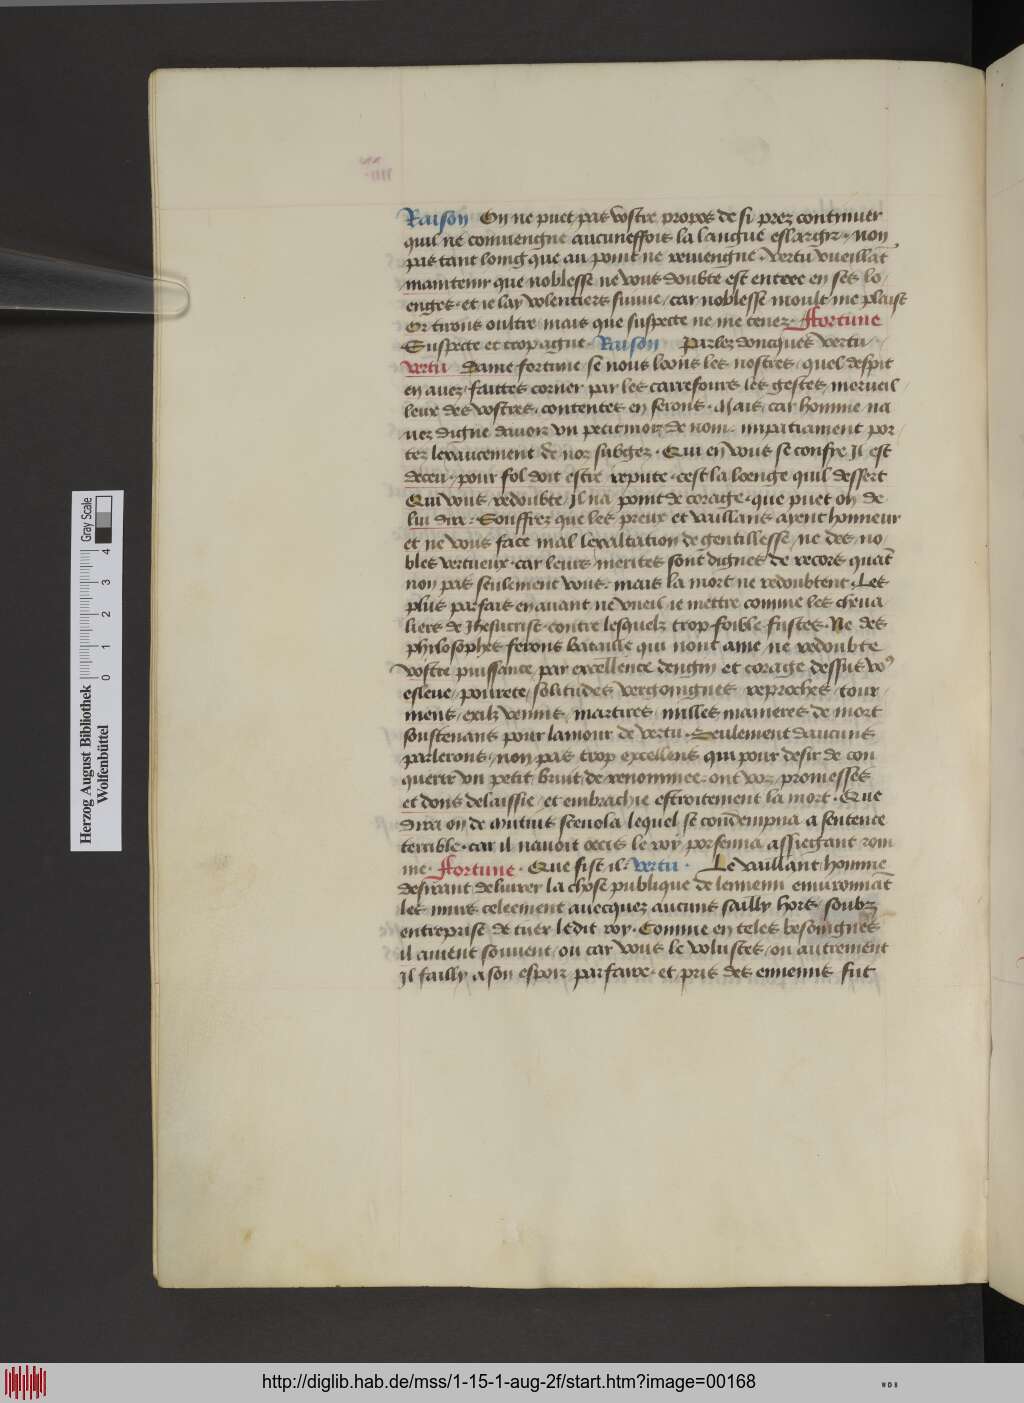 Raison On ne puet pas vostre propos de si prez continuer
quil ne conviengne aucuneffois la langue eslargir · non
pas tant loing que au point ne reviengne · vertu vueillāt
maintenir que noblesse ne vous doubte est entree en ses lo
enges · et ie lay volentiers suiuie / car noblesse moult me plaist
Or tirons oultre mais que suspecte ne me tenez · ffortune
Suspecte et trop ague · Raison Parlez doncques vertu ·
vertu Dame fortune / se nous loons les nostres / quel despit
en auez · faittes corner par les carrefours les gestes merueil
leux des vostres · contentes en serons · Mais car homme na
uez digne dauoir vn petit mot de nom · impatiament por
tez lexaucement de noz subgez · Qui en vous se confie Il est
deceu / pour fol doit estre repute · cest la loenge quil dessert
Qui vous redoubte / Il na point de corage · que puet on de
lui dire · Souffrez que les preux et vaillans ayent honneur
et ne vous face mal lexaltation de gentillesse / ne des no
bles vertueux · car leurs merites sont dignes de recors quāt
non pas seulement vous · mais la mort ne redoubtent · Les
plus parfais en auant ne vueil ie mettre comme les cheua
liers de Jhesucrist · contre lesquelz trop foible fustes · Ne des
philosophes ferons bataille qui nont ame ne redoubte
vostre puissance par excellence dengin et corage dessus vo9
esleue / pourete / solitudes vergoingnes reproches tour
mens / exilz venins / martires / milles manieres de mort
soustenans pour lamour de vertu · Seulement daucuns
parlerons / non pas trop excellens qui pour desir de con
querir vn petit bruit de renommee ont voz promesses
et dons delaissie / et embrachie estroitement la mort · Que
dira on de Mutius scevola lequel se condempna a sentence
terrible · car il nauoit occis le roy porsenna assiegant rom
me · ffortune · Que fist il · vertu · Le vaillant homme
desirant deliurer la chose publique de lennemi enuironnāt
les murs celeement auecquez aucuns sailly hors / soubz
entreprise de tuer ledit roy · Comme en teles besoingnes
il auient souuent / ou car vous le volustes / ou autrement
Il failly a son espoir parfaire · et pris des ennemis fut
Herzog August Bibliothek
Wolfenbüttel
0 1 2 3 4
Gray Scale
http://diglib.hab.de/mss/1-15-1-aug-2f/start.htm?image=00168